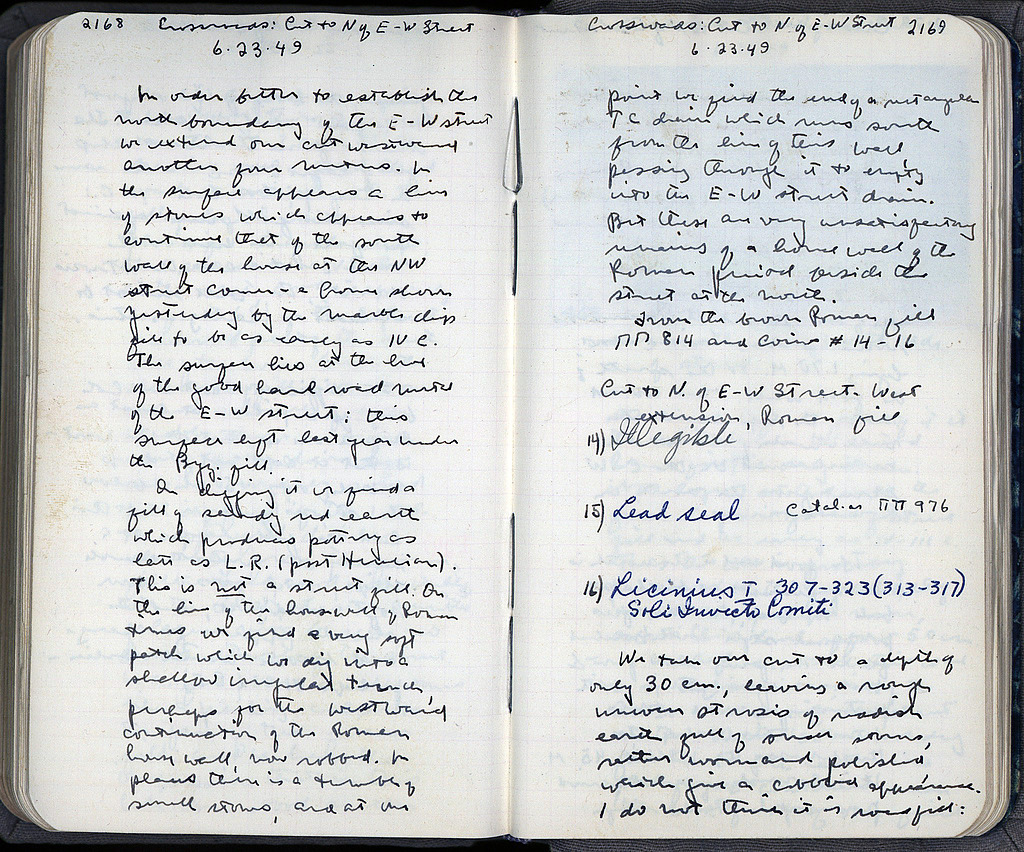 2168 Crossroads: Cut to N of E-W Street
6.23.49
In order better to establish the
north boundary of the E-W street
we extend our cut westward
another four metres. In
the surface appears a line
of stones which appears to
continue that of the south
wall of the house at the NW
street corner - a house shown
yesterday by the marble chip
fill to be as early as IV C.
The surface lies at the level
of the good hard road metal
of the E-W street: this
surface left last year under
the Byz. fill.
On digging it we find a
fill of sandy red earth
which produces pottery as
late as L.R. (post Herulian).
This is not a street fill. On
the line of the house wall, Roman
times we find a very soft
patch which we dig into a
shallow irregular trench,
perhaps for the westward
continuation of the Roman
house wall, now robbed. In
places there is a tumble of
small stones, and at one
Crossroads: Cut to N. of E-W Street 2169
6.23.49
point we find the end of a rectangular
TC drain which runs south
from the line of this wall
passing through it to empty
into the E-W street drain.
But these are very unsatisfactory
remains of a house wall of the
Roman period beside the
street at the north.
From the brown Roman fill
ΠΠ 814 and Coins # 14-16
Cut to N. of E-W Street. West
extension, Roman fill
14) Illegible
15) Lead seal Catal. as ΠΠ 976
16) Licinius I 307-323 (313-317)
Soli Invicto Comiti
We take our cut to a depth of
only 30 cm., leaving a rough
uneven strosis of reddish
earth full of small stones,
rather worn and polished
which give a cobbled appearance.
I do not think it is road fill: